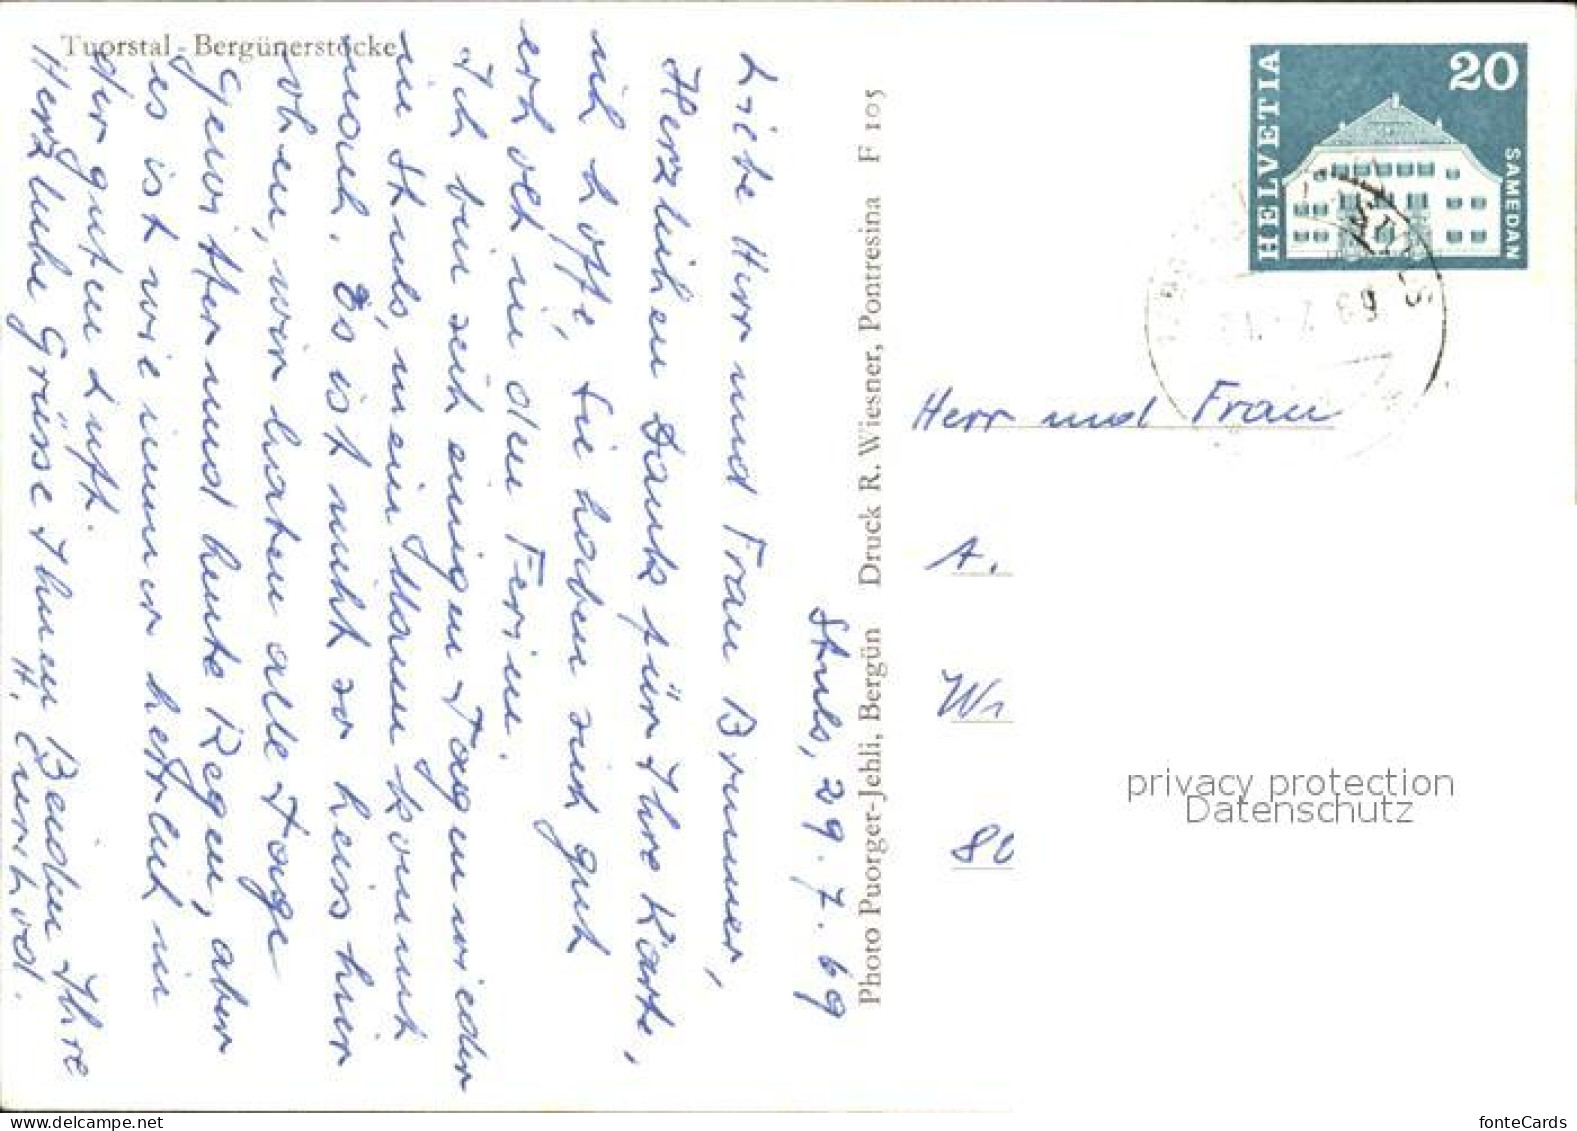 Tuorstal - Bergünerstöcke
Stuls, 29. 7. 69
Liebe Herr und Frau Brunner,
Herzlichen Dank für Ihre Karte,
ich hoffe, Sie haben sich gut
erholt in den Ferien.
Ich bin seit einigen Tagen wieder
in Stuls, mein Mann kommt
noch. Es ist nicht so heiss hier
oben, wir hatten alle Tage
Gewitter und heute Regen, aber
es ist wie immer herrlich in
der guten Luft.
Herzliche Grüsse Ihnen Beiden Ihre
Photo Puorger-Jehli, Bergün Druck R. Wiesner, Pontresina F 105
HELVETIA
20
SAMEDAN
STULS
Herr und Frau
A.
privacy protection
Datenschutz
fonteCards